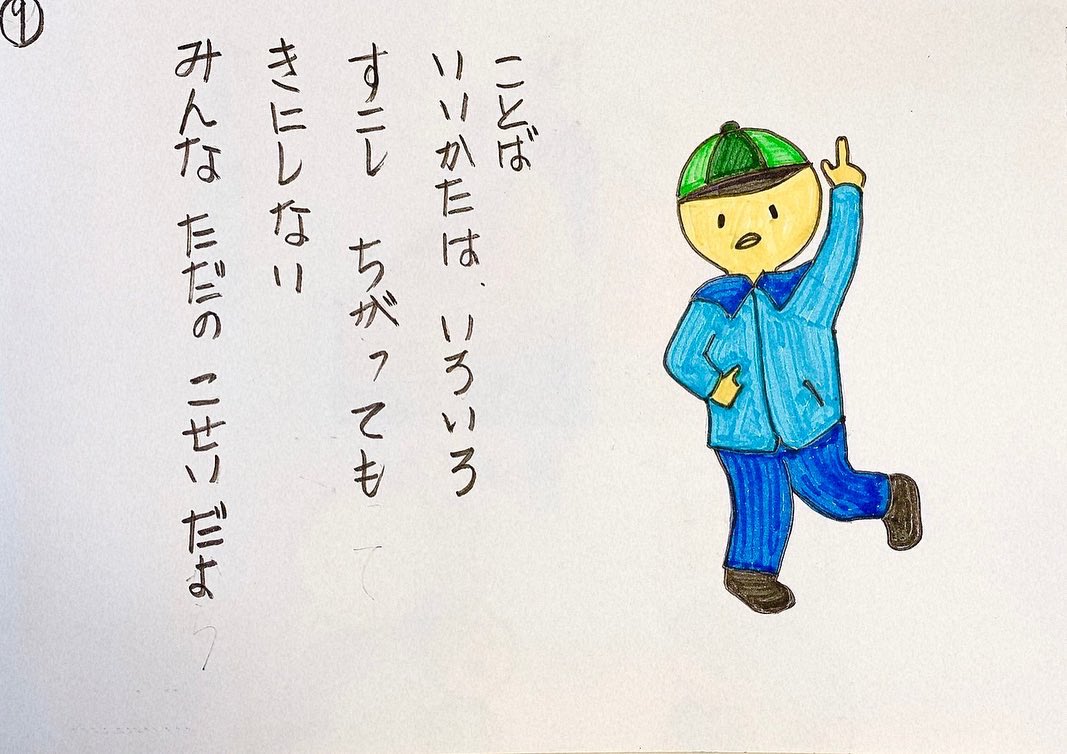 ⑨
ことば
いいかたは、いろいろ
すこし ちがっても
きにしない
みんな ただの こせいだよ